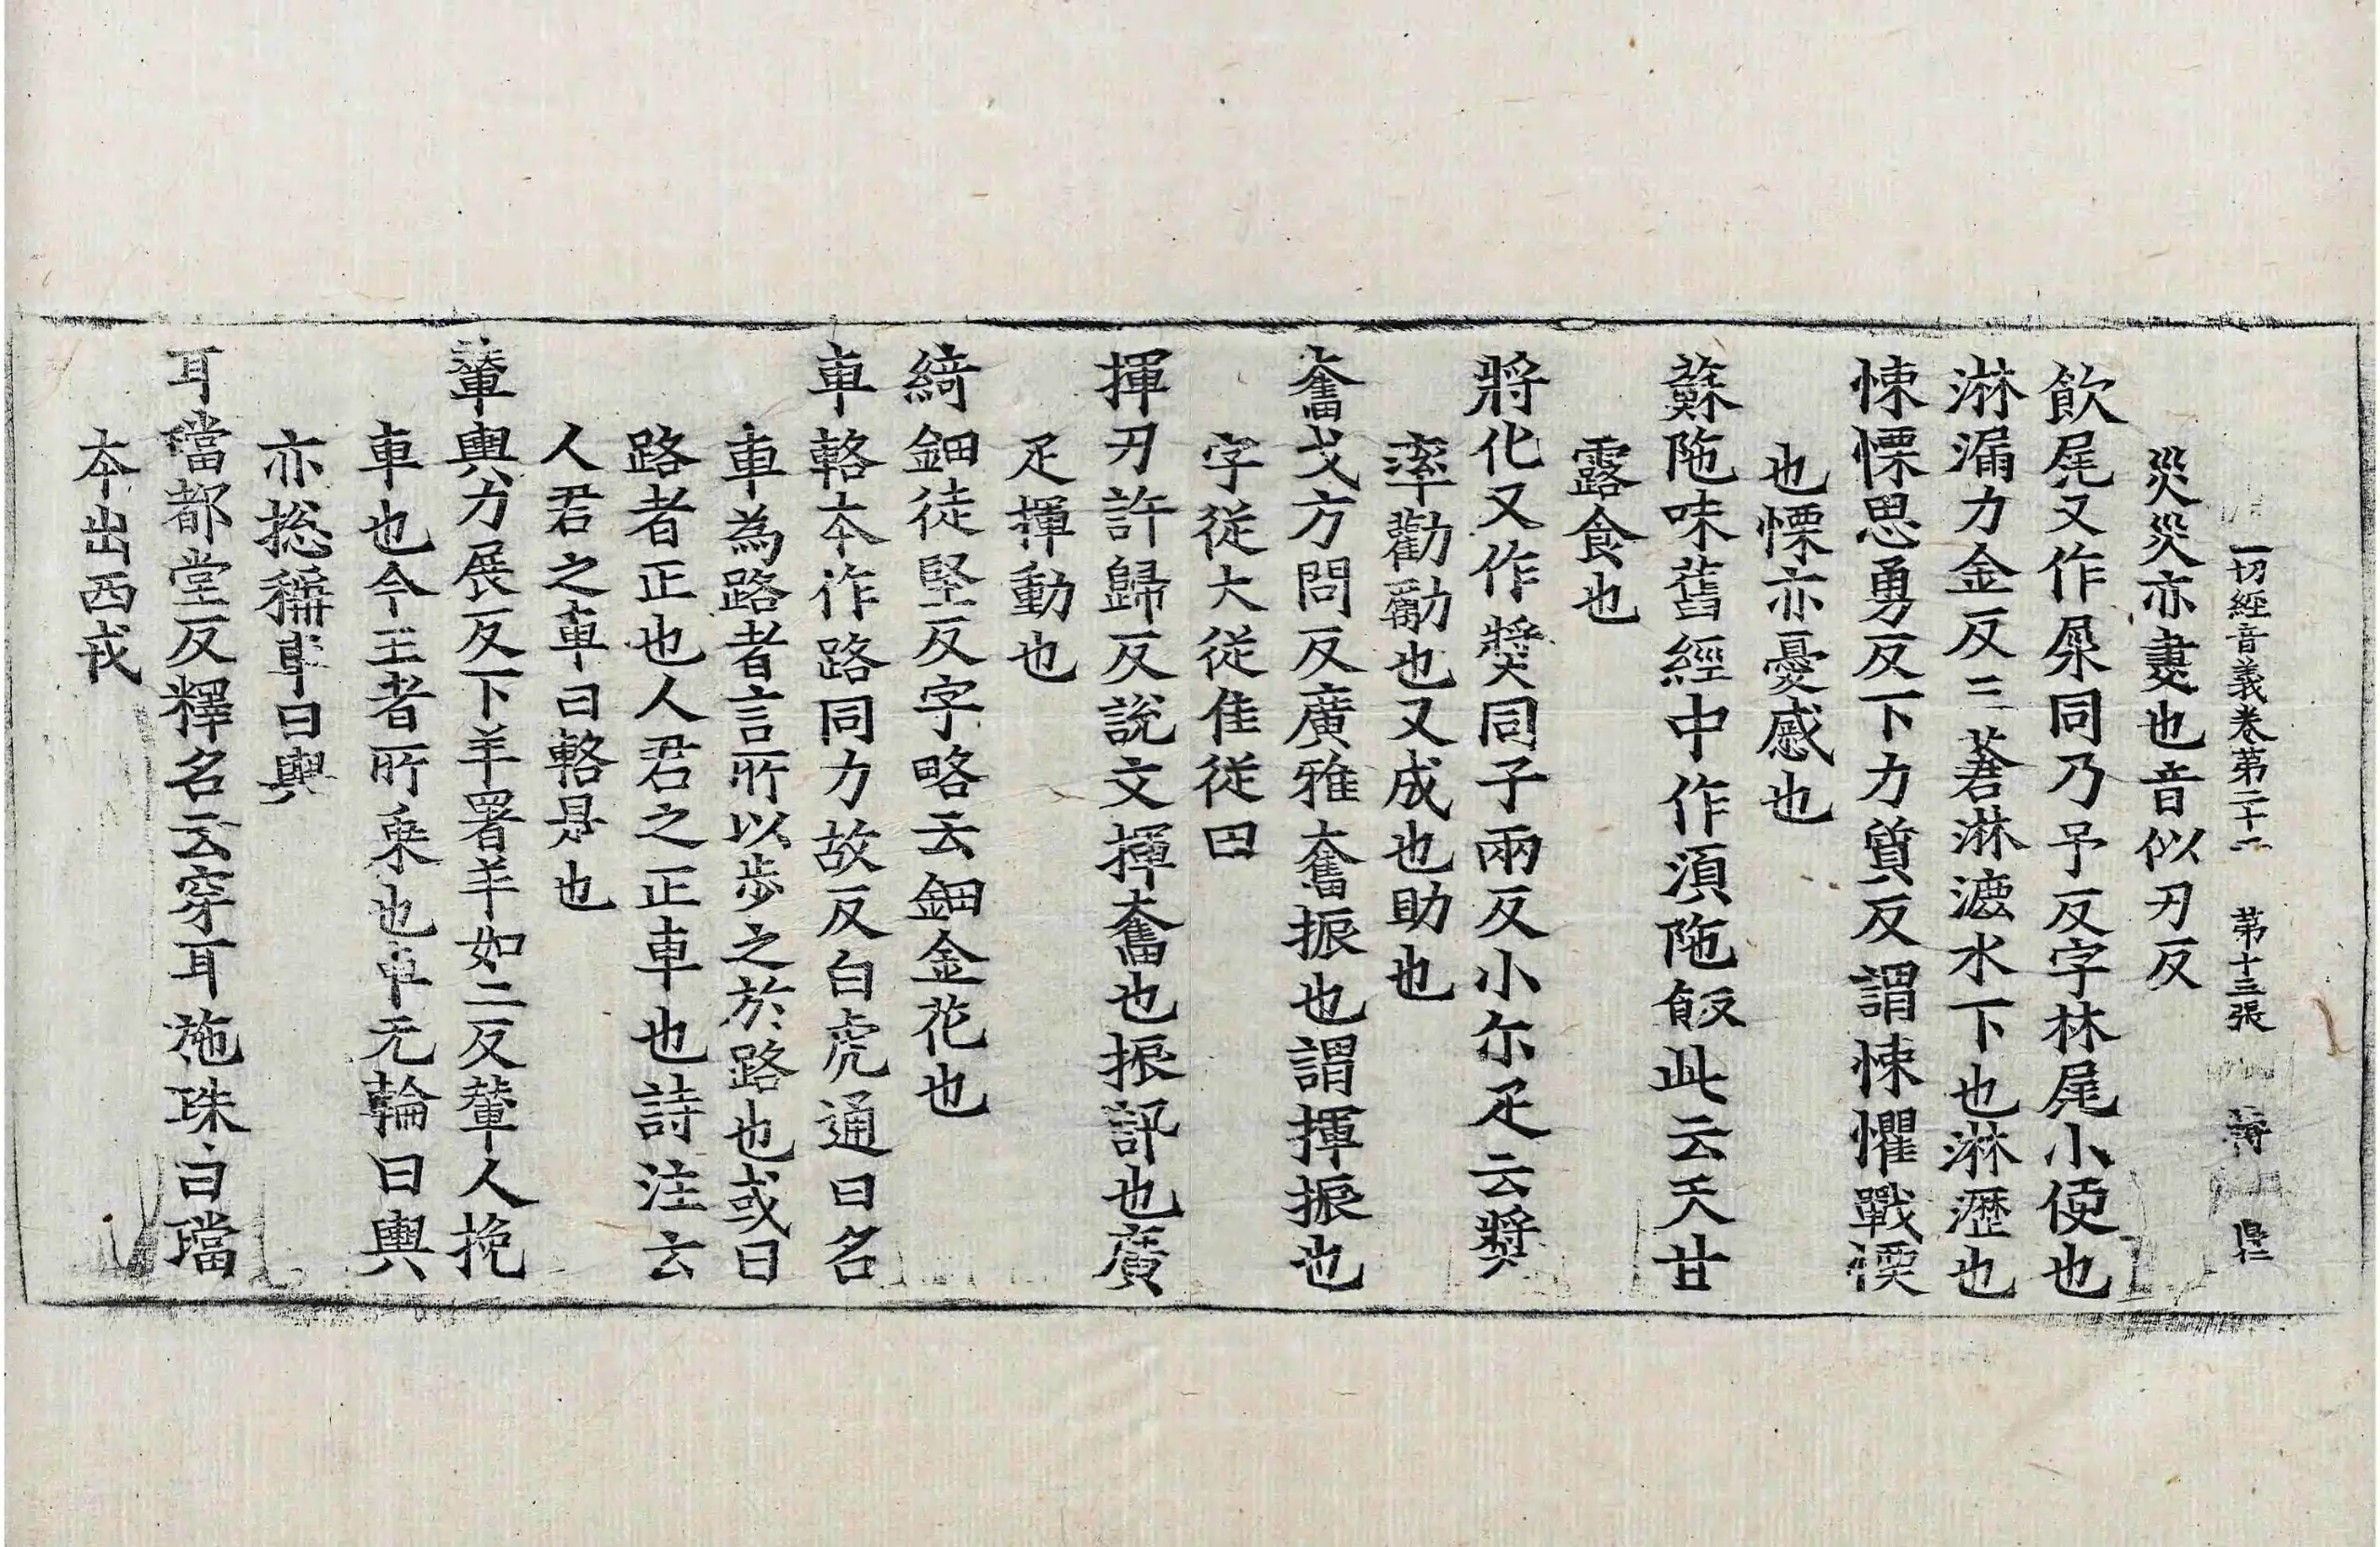 一切経音義卷第二十二 第十三張
災災亦妻也音似刃反
飲尾又作㞙同乃予反字林尾小便也
淋漏力金反三蒼淋漉水下也淋瀝也
悚慄思勇反下力質反謂悚懼戰慄
也慄亦憂慼也
蘇陁味舊經中作湏陁飯此云天甘
露食也
將化又作奬同子兩反小尓疋云奬
率勸勵也又成也助也
奮戈方問反廣雅奮振也謂揮振也
字從大從隹從田
揮刃許歸反說文揮奮也振訊也廣
疋揮動也
綺鈿徒堅反字略云鈿金花也
車輅本作路同力故反白虎通曰名
車為路者言所以步之於路也或曰
路者正也人君之正車也詩注云
人君之車曰輅是也
輦輿力展反下羊署羊如二反輦人挽
車也今王者所乗也車无輪曰輿
亦捴稱車曰輿
耳璫都堂反釋名云穿耳施珠曰璫
本出西戎